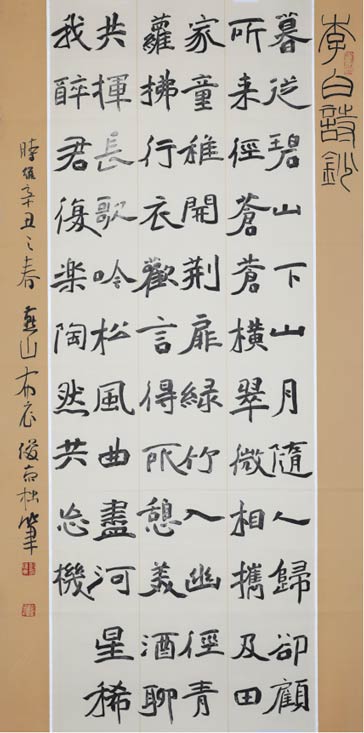 李白詩鈔
暮從碧山下山月隨人歸卻顧
所来徑蒼蒼橫翠微相攜及田
家童稚開荊扉緑竹入幽徑青
蘿拂行衣歡言得所憩美酒聊
共揮長歌吟松風曲盡河星稀
我醉君復楽陶然共忘機
時值辛丑之春燕山布衣筆